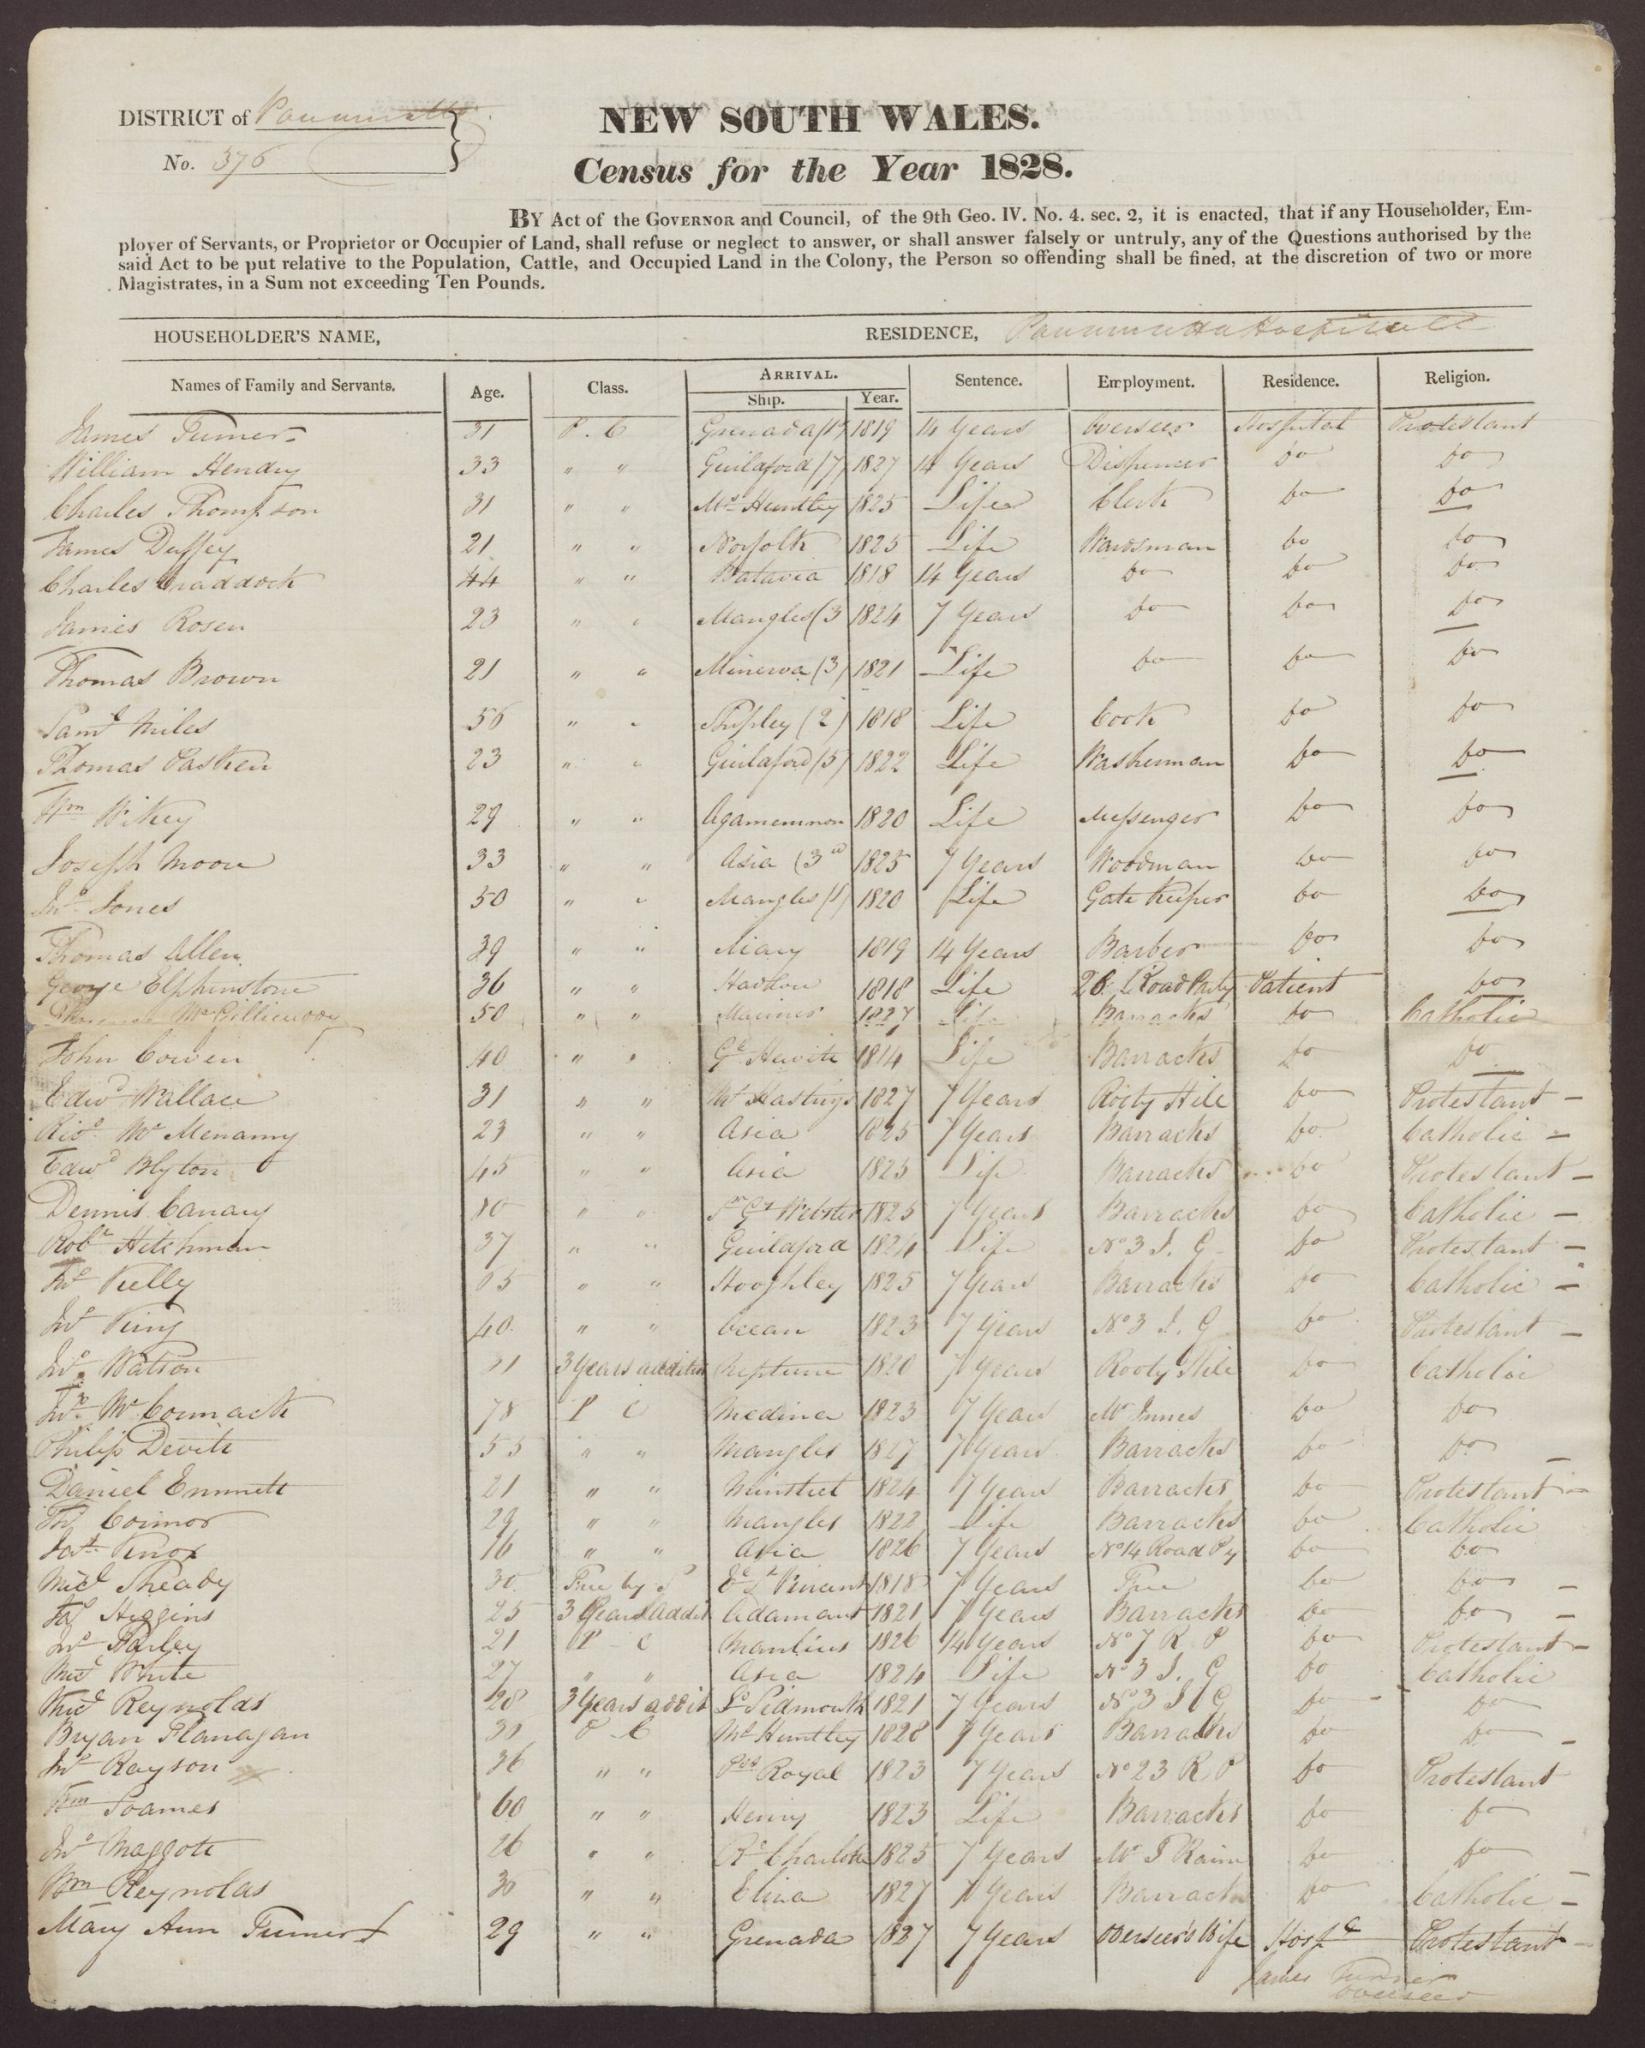 DISTRICT of Parramatta
No. 376
NEW SOUTH WALES.
Census for the Year 1828.
BY Act of the GOVERNOR and Council, of the 9th Geo. IV. No. 4. sec. 2, it is enacted, that if any Householder, Em-
ployer of Servants, or Proprietor or Occupier of Land, shall refuse or neglect to answer, or shall answer falsely or untruly, any of the Questions authorised by the
said Act to be put relative to the Population, Cattle, and Occupied Land in the Colony, the Person so offending shall be fined, at the discretion of two or more
Magistrates, in a Sum not exceeding Ten Pounds.
HOUSEHOLDER'S NAME, RESIDENCE, Parramatta Hospital
Names of Family and Servants. Age. Class. ARRIVAL. Ship. Year. Sentence. Employment. Residence. Religion.
James Turner 31 P. C Grenada (1) 1819 14 Years Overseer Hospital Protestant
William Hendry 33 " " Guilaford (7) 1827 14 Years Dispencer Do Do
Charles Thompson 31 " " Ms Huntley 1825 Life Clerk Do Do
James Duffey 21 " " Norfolk 1825 Life Wardsman Do Do
Charles Craddock 44 " " Batavia 1818 14 Years Do Do Do
James Rosen 23 " " Mangles (3 1824 7 Years Do Do Do
Thomas Brown 21 " " Minerva (3) 1821 Life Do Do Do
Saml Miles 56 " " Shipley (2) 1818 Life Cook Do Do
Thomas 23 " " Guilaford (5) 1822 Life Washerman Do Do
Wm Wikey 29 " " Agamemnon 1820 Life Messenger Do Do
Joseph Moore 33 " " Asia (3rd 1825 7 Years Woodman Do Do
Jno Jones 50 " " Mangles (1) 1820 Life Gate Keeper Do Do
Thomas Allen 39 " " Mary 1819 14 Years Barber Do Do
George Elphinstone 36 " " Hadlow 1818 Life 26 Road Party Patient Do
50 " " Mariner 1827 Life Barracks Do Catholic
John Cowen 40 " " Gl Hewite 1814 Life Barracks Do Do
Edwd Wallace 31 " " Ms Hastings 1827 7 Years Rooty Hile Do Protestant
Ricd Mc Menamy 23 " " Asia 1825 7 Years Barracks Do Catholic
Edwd Blyton 45 " " Asia 1825 Life Barracks Do Protestant
Dennis Canary 80 " " Sir Gy Webster 1825 7 Years Barracks Do Catholic
Robt Hitchman 37 " " Guilaford 1824 Life No 3 I. G Do Protestant
Kelly 65 " " Hooghley 1825 7 Years Barracks Do Catholic
Jno King 40 " " Ocean 1823 7 Years No 3 I. G Do Protestant
Jno Watson 31 3 Years addition Neptune 1820 7 Years Rooty Hile Do Catholic
Jno Mc Cormack 78 P C Medina 1823 7 Years Mr Innes Do Do
Philip Devite 55 " " Mangles 1827 7 Years Barracks Do Do
Daniel Emmett 21 " " Minstrel 1824 7 Years Barracks Do Protestant
Connor 29 " " Mangles 1822 Life Barracks Do Catholic
Knox 16 " " Asia 1826 7 Years No 14 Road Py Do Do
Micl Sheady 30 Free by S 1818 7 Years Free Do Do
Higgins 25 3 Years Addit Adamant 1821 7 Years Barracks Do Do
Jno Harley 21 P C Manlius 1826 14 Years No 7 R P Do Protestant
Micl White 27 " " Asia 1824 Life No 3 I. G Do Catholic
Micl Reynolds 28 3 Years addit Ld Sidmouth 1821 7 Years No 3 I G Do Do
Bryan Flanagan 30 P C Ms Huntley 1828 7 Years Barracks Do Do
Jno Rayson 36 " " Pss Royal 1823 7 Years No 23 R P Do Protestant
Wm Soames 60 " " Henry 1823 Life Barracks Do Do
Jno Maggott 26 " " Rl Charlotte 1825 7 Years Mr J Raine Do Do
Wm Reynolds 30 " " Eliza 1827 7 Years Barracks Do Catholic
Mary Ann Turner 29 " " Grenada 1827 7 Years Overseer's Wife Hospl Protestant
James Turner
Overseer